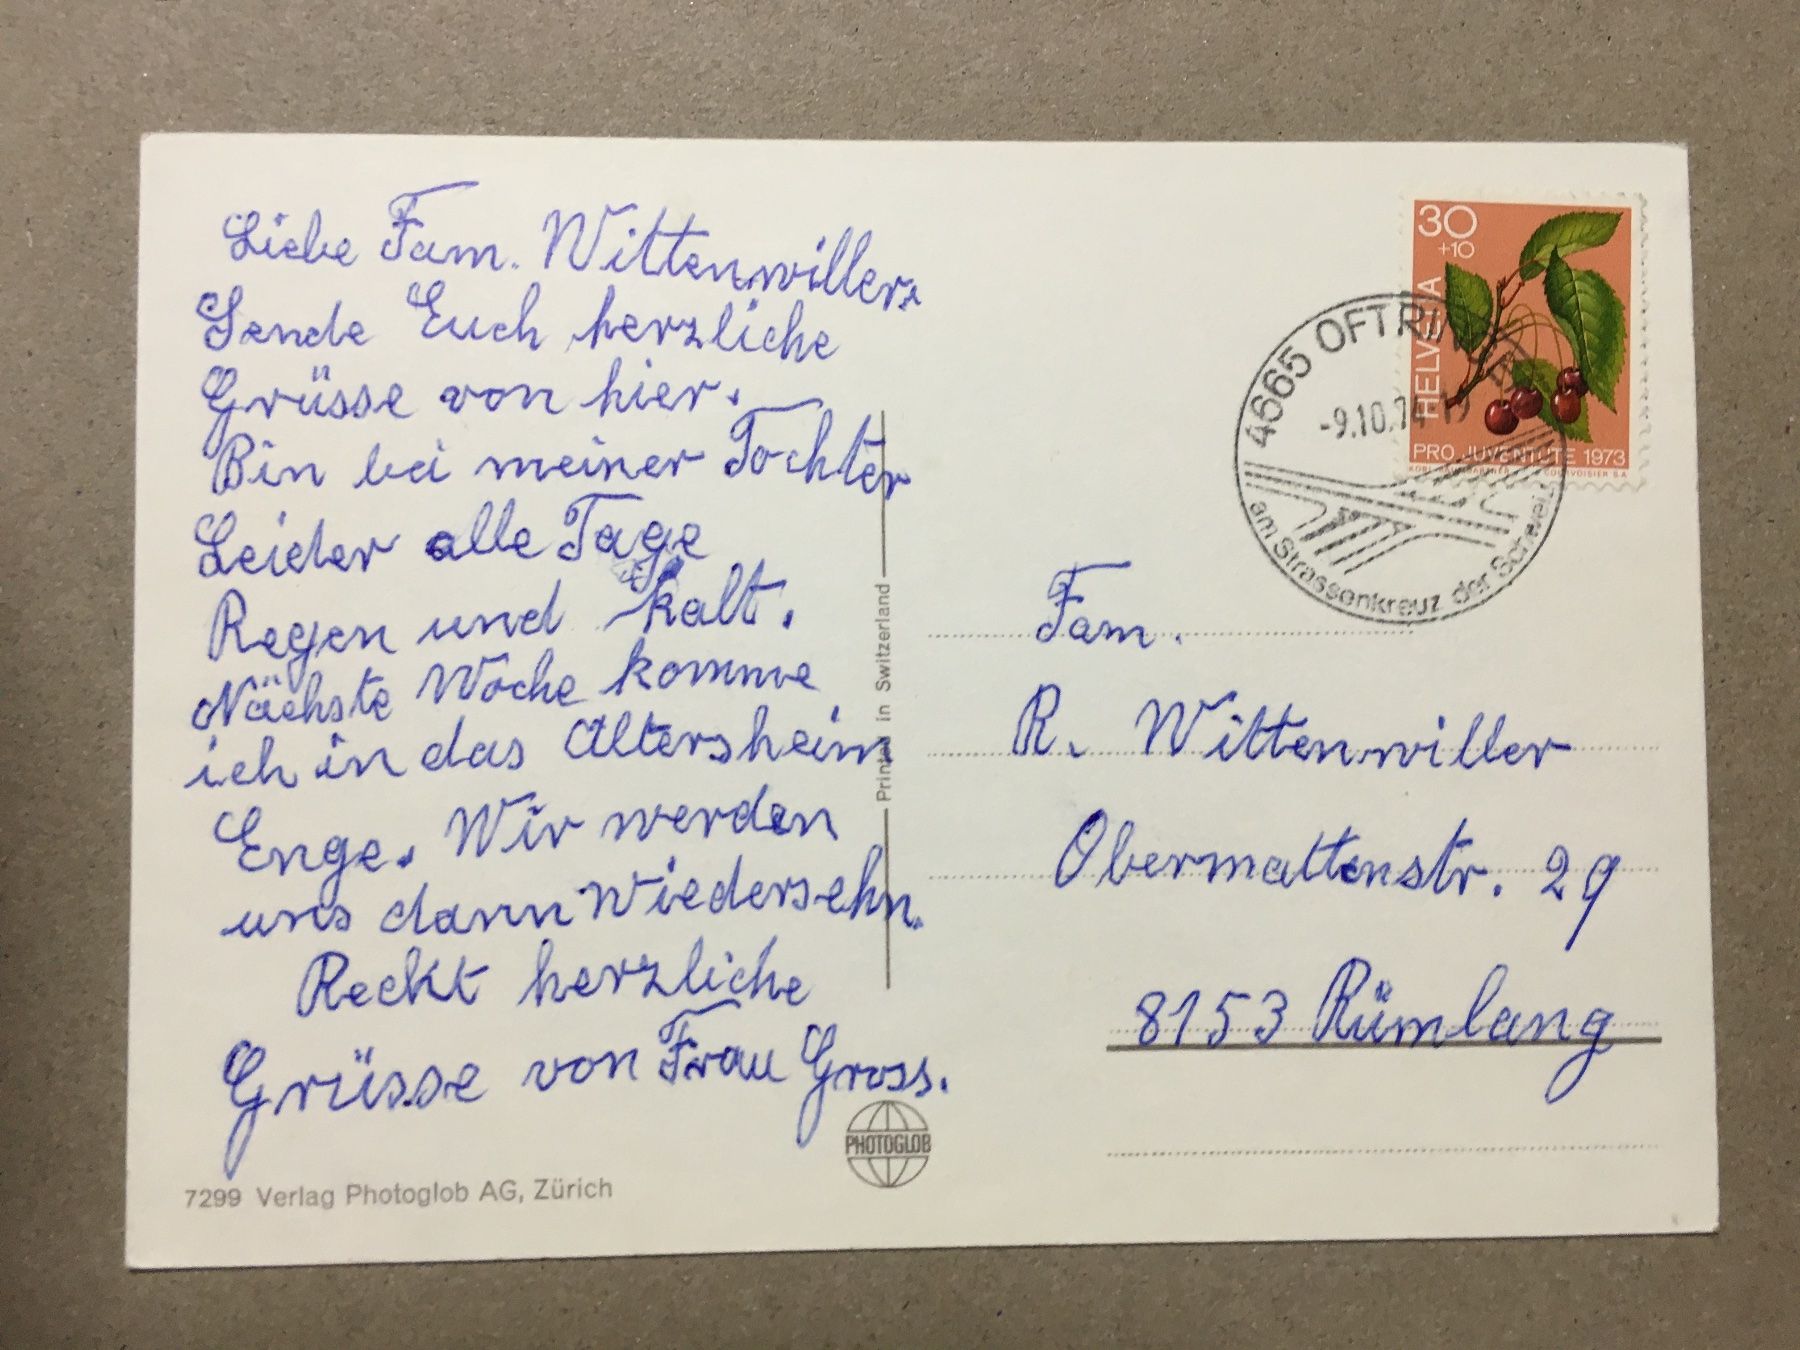 Liebe Fam. Wittenwiller.
Sende Euch herzliche
Grüsse von hier.
Bin bei meiner Tochter
Leider alle Tage
Regen und kalt.
Nächste Woche komme
ich in das Altersheim
Enge. Wir werden
uns dann Wiedersehn.
Reckt herzliche
Grüsse von Frau Gross.
7299 Verlag Photoglob AG, Zürich
PHOTOGLOB
Printed in Switzerland
30
+10
HELVETIA
PRO JUVENTUTE 1973
COURVOISIER S.A.
4665 OFTRINGEN
-9.10.74-19
am Strassenkreuz der Schweiz
Fam.
R. Wittenwiller
Obermattenstr. 29
8153 Rümlang